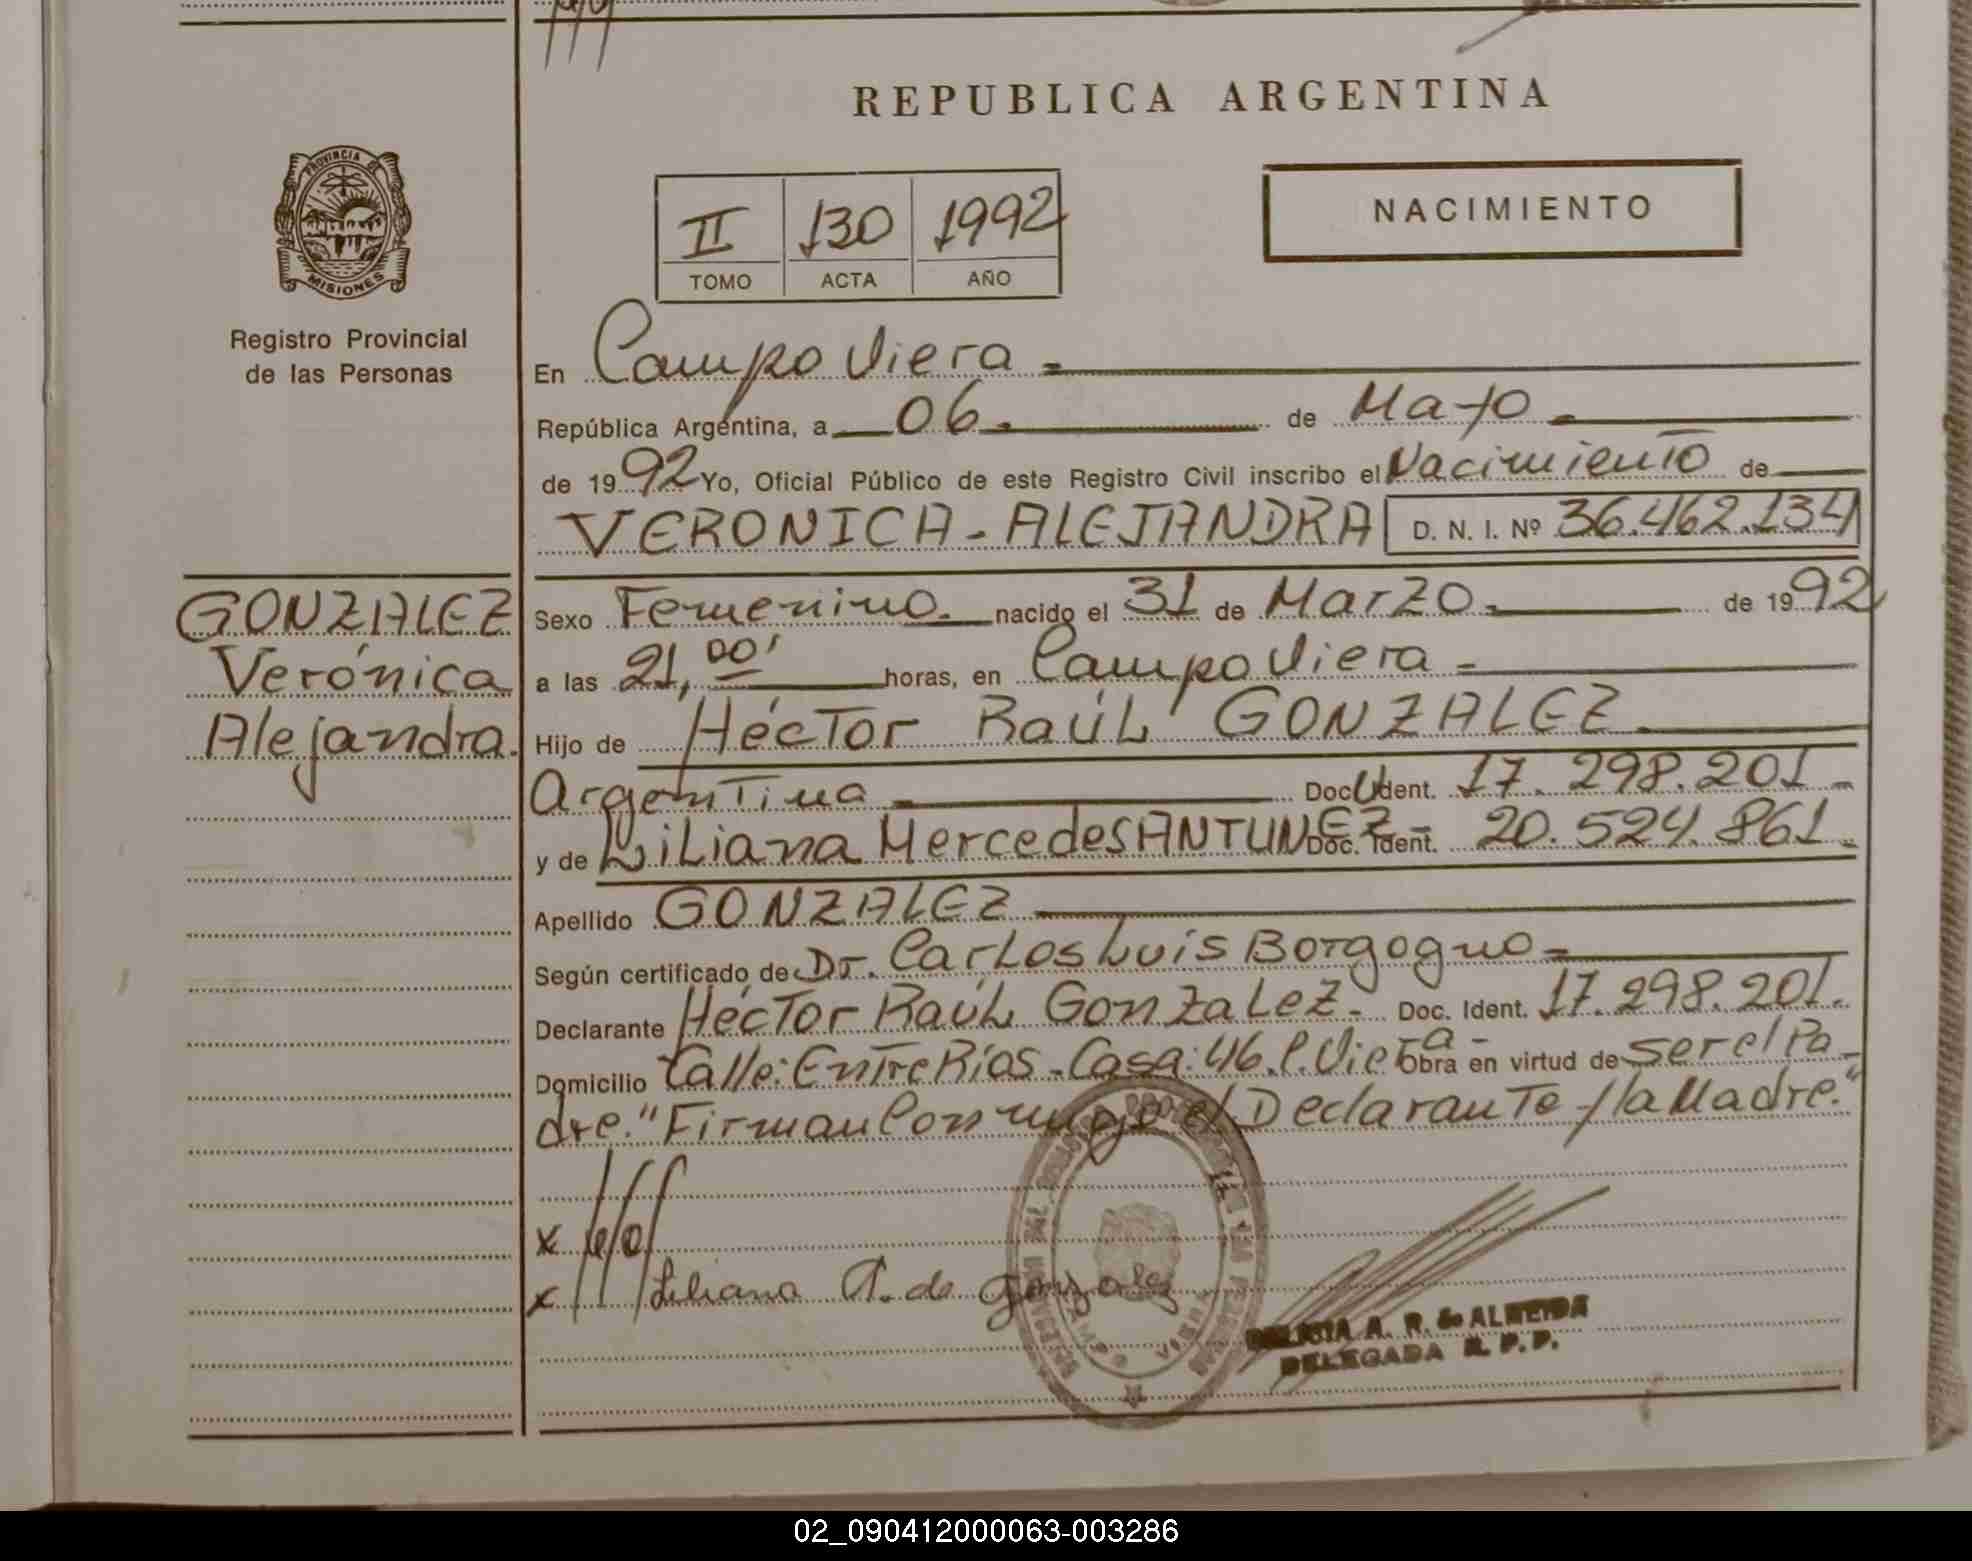 REPUBLICA ARGENTINA
PROVINCIA DE
MISIONES
Registro Provincial
de las Personas
II 130 1992
TOMO ACTA AÑO
NACIMIENTO
En Campo Viera
República Argentina, a 06. de Mayo
de 1992 Yo, Oficial Público de este Registro Civil inscribo el Nacimiento de
VERONICA-ALEJANDRA D. N. I. Nº 36.462.134
GONZALEZ
Verónica
Alejandra.
Sexo Femenino. nacido el 31 de Marzo. de 1992
a las 21,00' horas, en Campo Viera
Hijo de Héctor Raúl GONZALEZ.
Argentina Doc. Ident. 17.298.201
y de Liliana Mercedes ANTUNEZ Doc. Ident. 20.524.861
Apellido GONZALEZ
Según certificado de Dr. Carlos Luis Borgogno
Declarante Héctor Raúl Gonzalez. Doc. Ident. 17.298.201.
Domicilio Calle: Entre Ríos - Casa: 46. C. Viera - Obra en virtud de ser el Pa
dre. "Firman Conmigo el Declarante y la Madre."
x
x Liliana A. de Gonzalez
A. R. de ALMEIDA
DELEGADA R. P. P.
02_090412000063-003286